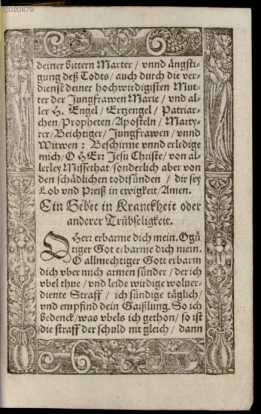 deiner bittern Marter / vnnd ängsti-
gung deß Todts / auch durch die ver-
dienst deiner hochwirdigisten Mut-
ter der Jungfrawen Marie / vnd al-
ler H. Engel / Ertzengel / Patriar-
chen / Propheten / Aposteln / Marty-
rer / Beichtiger / Jungfrawen / vnnd
Witwen : Beschirme vnnd erledige
mich / O HErr Jesu Christe / von al-
lerley Missethat / sonderlich aber von
den schädlichen todsünden / dir sey
Lob vnd Preiß in ewigkeit / Amen.
Ein Gebet in Kranckheit oder
anderer Trübseligkeit.
O Herr erbarme dich mein. O gü-
tiger Got erbarme dich mein.
O allmechtiger Gott erbarm
dich vber mich armen sünder / der ich
vbel thue / vnd leide wirdige wolver-
diente Straff / ich sündige täglich /
vnd empfind dein Gaißlung. So ich
bedenck / was vbels ich gethon / so ist
die straff der schuld nit gleich / dann